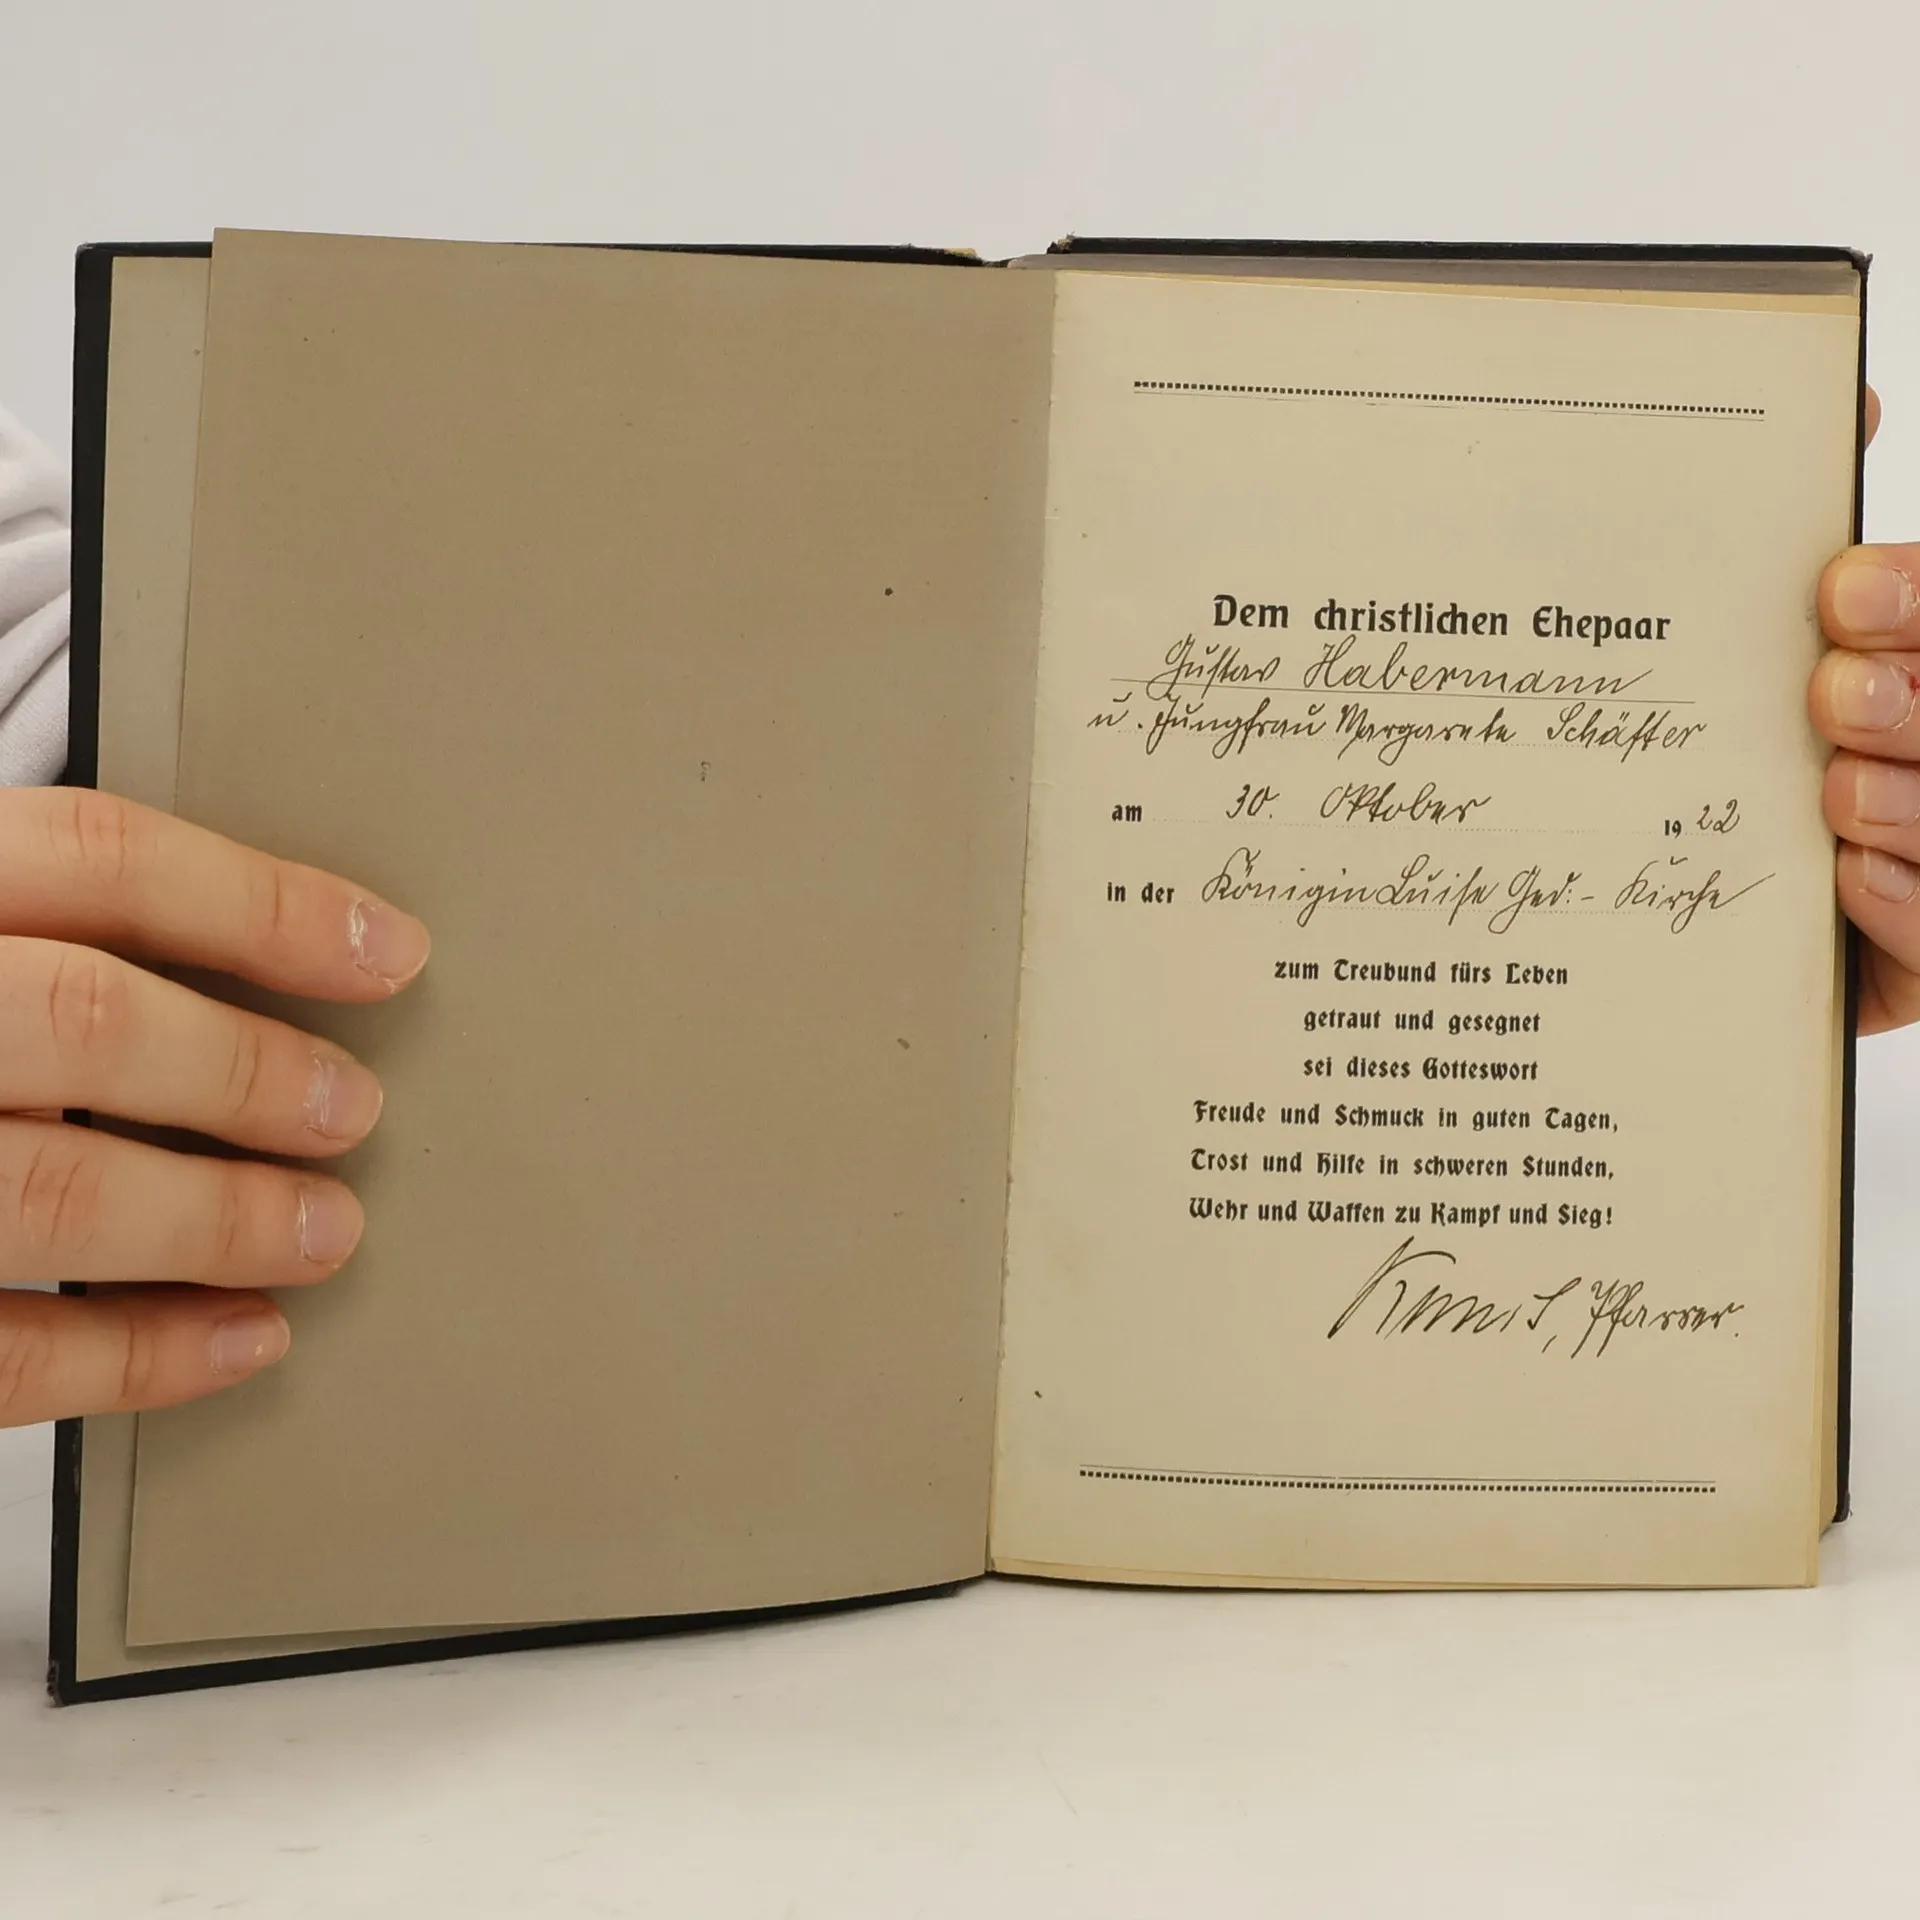 Dem christlichen Ehepaar
Gustav Habermann
u. Jungfrau Margarete Schäffer
am 30. Oktober 1922
in der Königin Luise Ged.- Kirche
zum Treubund fürs Leben
getraut und gesegnet
sei dieses Gotteswort
Freude und Schmuck in guten Tagen,
Trost und Hilfe in schweren Stunden,
Wehr und Waffen zu Kampf und Sieg!
Pfarrer.